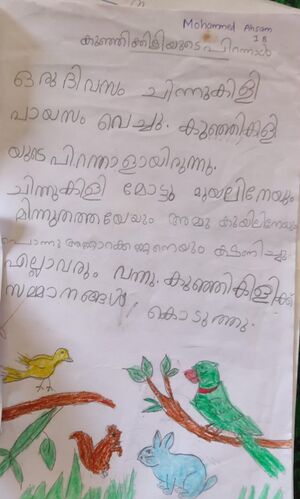 Mohammed Ahsam
1 B
കുഞ്ഞിക്കിളിയുടെ പിറന്നാൾ
ഒരു ദിവസം ചിന്നുകിളി
പായസം വെച്ചു. കുഞ്ഞികിളി
യുടെ പിറന്നാളായിരുന്നു.
ചിന്നുകിളി മോട്ടു മുയലിനേയും
മിന്നുതത്തയേയും അമ്മുകുയിലിനേയും
പൊന്നു അണ്ണാറക്കണ്ണനെയും ക്ഷണിച്ചു.
എല്ലാവരും വന്നു. കുഞ്ഞികിളിക്ക്
സമ്മാനങ്ങൾ കൊടുത്തു.